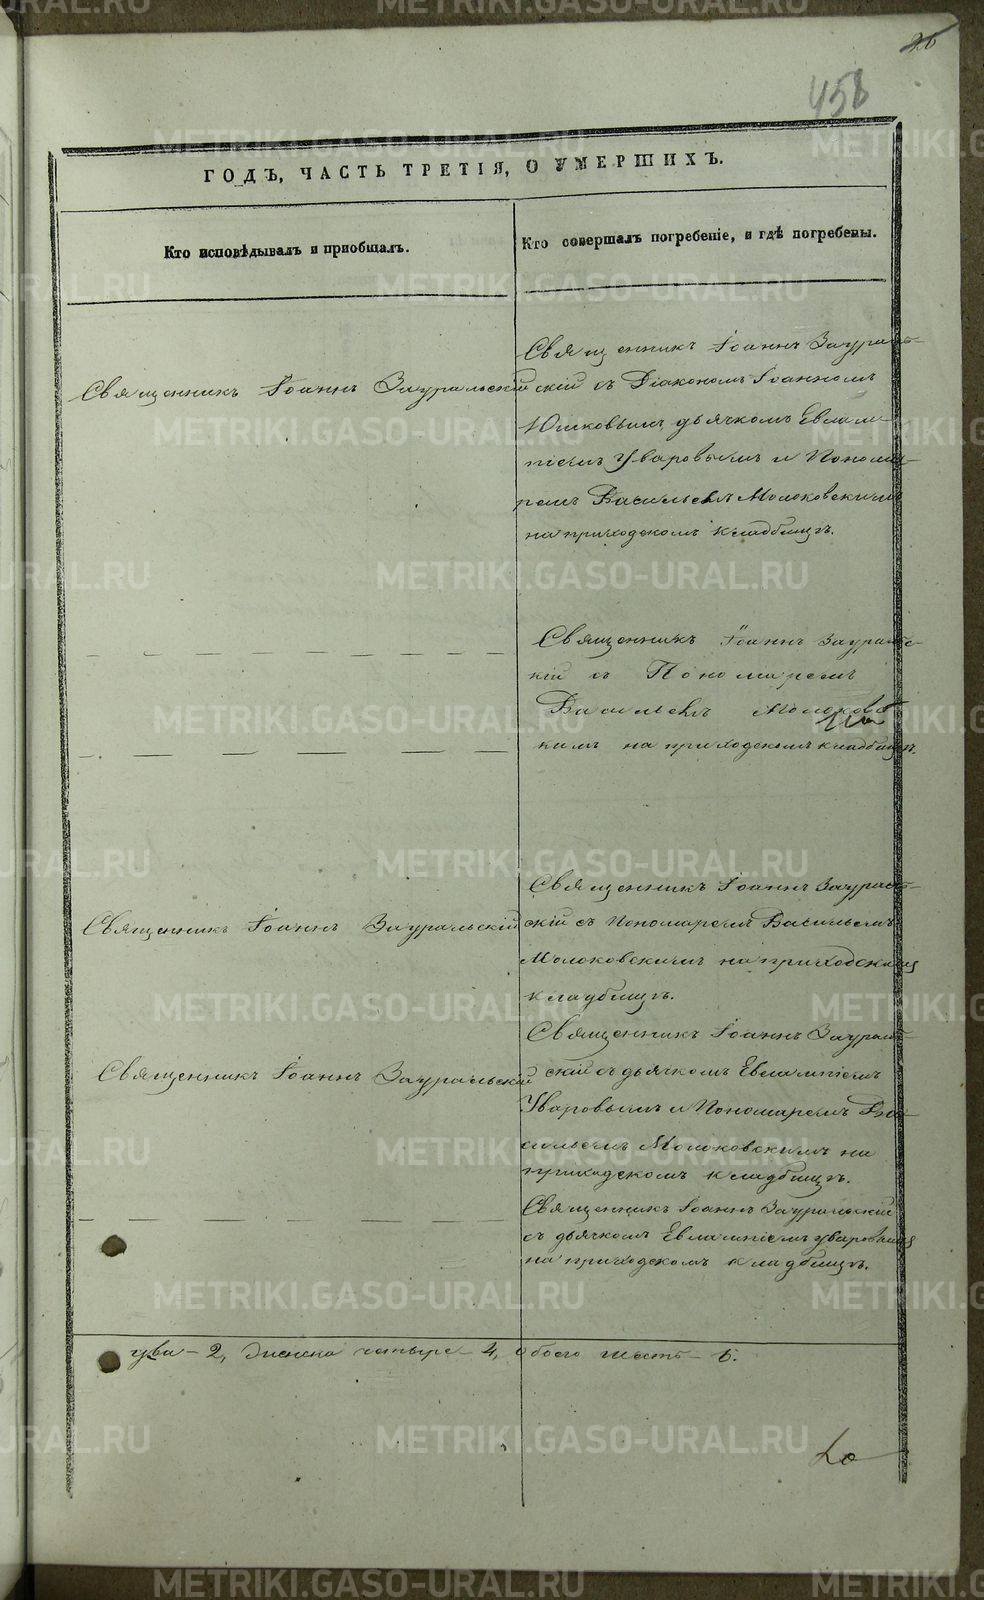 26
456
ГОДЪ, ЧАСТЬ ТРЕТІЯ, О УМЕРШИХЪ.
Кто исповѣдывалъ и приобщалъ.
Кто совершалъ погребеніе, и гдѣ погребены.
Священникъ Іоаннъ Зауральскій
Священникъ Іоаннъ Заураль-
скій съ Діакономъ Іоанномъ
дьячкомъ Евлам-
піемъ Уваровымъ и Понома-
ремъ Васильемъ Молоковскимъ
на приходскомъ кладбищѣ.
Священникъ Іоаннъ Зауральс-
кій съ Пономаремъ
Васильемъ Молоковс
кимъ на приходскомъ кладбищѣ.
Священникъ Іоаннъ Зауральскій
Священникъ Іоаннъ Заураль-
скій съ Пономаремъ Васильемъ
Молоковскимъ на приходскомъ
кладбищѣ.
Священникъ Іоаннъ Зауральскій
Священникъ Іоаннъ Заураль-
скій съ дьячкомъ Евлампіемъ
Уваровымъ и Пономаремъ Ва-
сильемъ Молоковскимъ на
приходскомъ кладбищѣ.
Священникъ Іоаннъ Зауральскій
съ дьячкомъ Евлампіемъ Уваровымъ
на приходскомъ кладбищѣ.
два - 2, женска четыре 4, обоего шесть - 6.
METRIKI.GASO-URAL.RU